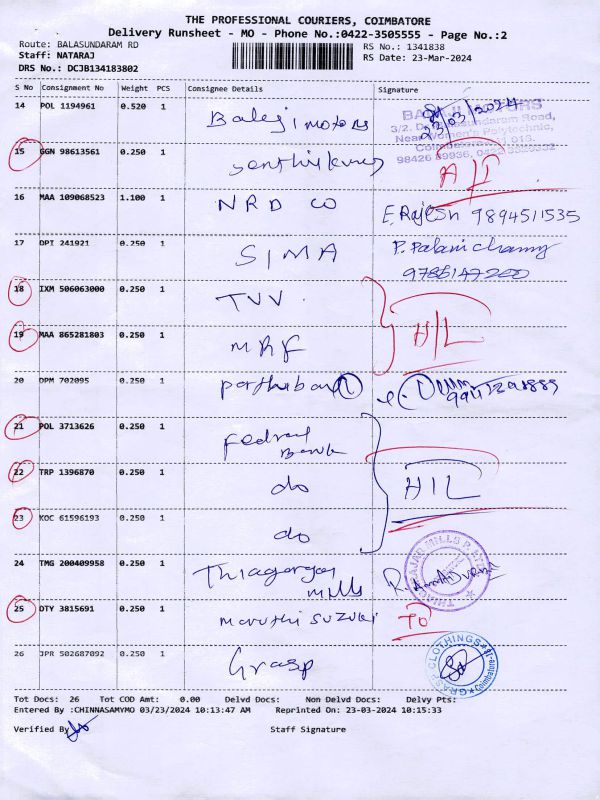 THE PROFESSIONAL COURIERS, COIMBATORE
Delivery Runsheet - MO - Phone No.:0422-3505555 - Page No.:2
Route: BALASUNDARAM RD RS No.: 1341838
Staff: NATARAJ RS Date: 23-Mar-2024
DRS No.: DCJB134183802
S No Consignment No Weight PCS Consignee Details Signature
14 POL 1194961 0.520 1 Balaji motors 23/03/2024
15 GGN 98613561 0.250 1 Senthilkumar A/I
16 MAA 109068523 1.100 1 NRD CO E. Rajesh 9894511535
17 DPI 241921 0.250 1 SIMA P. Palanichamy
18 IXM 506063000 0.250 1 TVV
19 MAA 865281803 0.250 1 MRF H/L
20 DPM 702095 0.250 1 Parthiban
21 POL 3713626 0.250 1 Federal Bank
22 TRP 1396870 0.250 1 do H/L
23 KOC 61596193 0.250 1 do
24 TMG 200409958 0.250 1 Thiagarajar mills
25 DTY 3815691 0.250 1 maruthi suzuki TO
26 JPR 502687092 0.250 1 Grasp GRASP CLOTHINGS
Tot Docs: 26 Tot COD Amt: 0.00 Delvd Docs: Non Delvd Docs: Delvy Pts:
Entered By :CHINNASAMYMO 03/23/2024 10:13:47 AM Reprinted On: 23-03-2024 10:15:33
Verified By Staff Signature